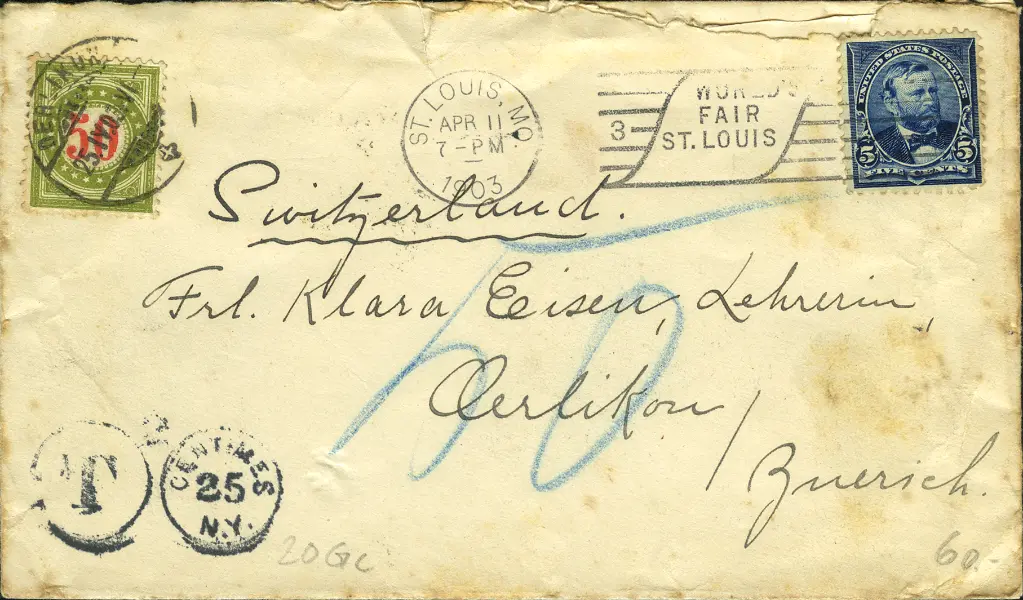 50
ST. LOUIS, MO.
APR 11
7-PM
1903
3
WORLD'S
FAIR
ST. LOUIS
UNITED STATES POSTAGE
5 5
FIVE CENTS
Switzerland.
50
Frl. Klara Eisen, Lehrerin,
Oerlikon/
Zuerich.
T
CENTIMES
25
N.Y.
20Gc
60.-